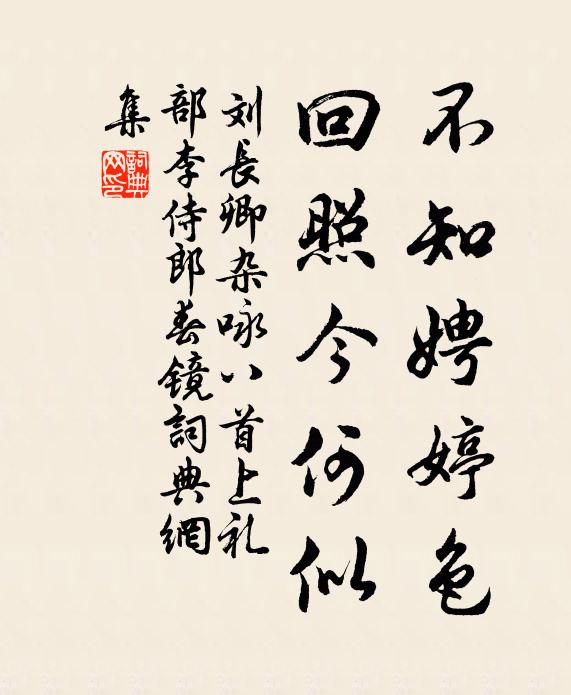 不知娉婷色
回照今何似
刘長卿杂咏八首上礼
部李侍郎春鏡詞典網
集
詞典網印